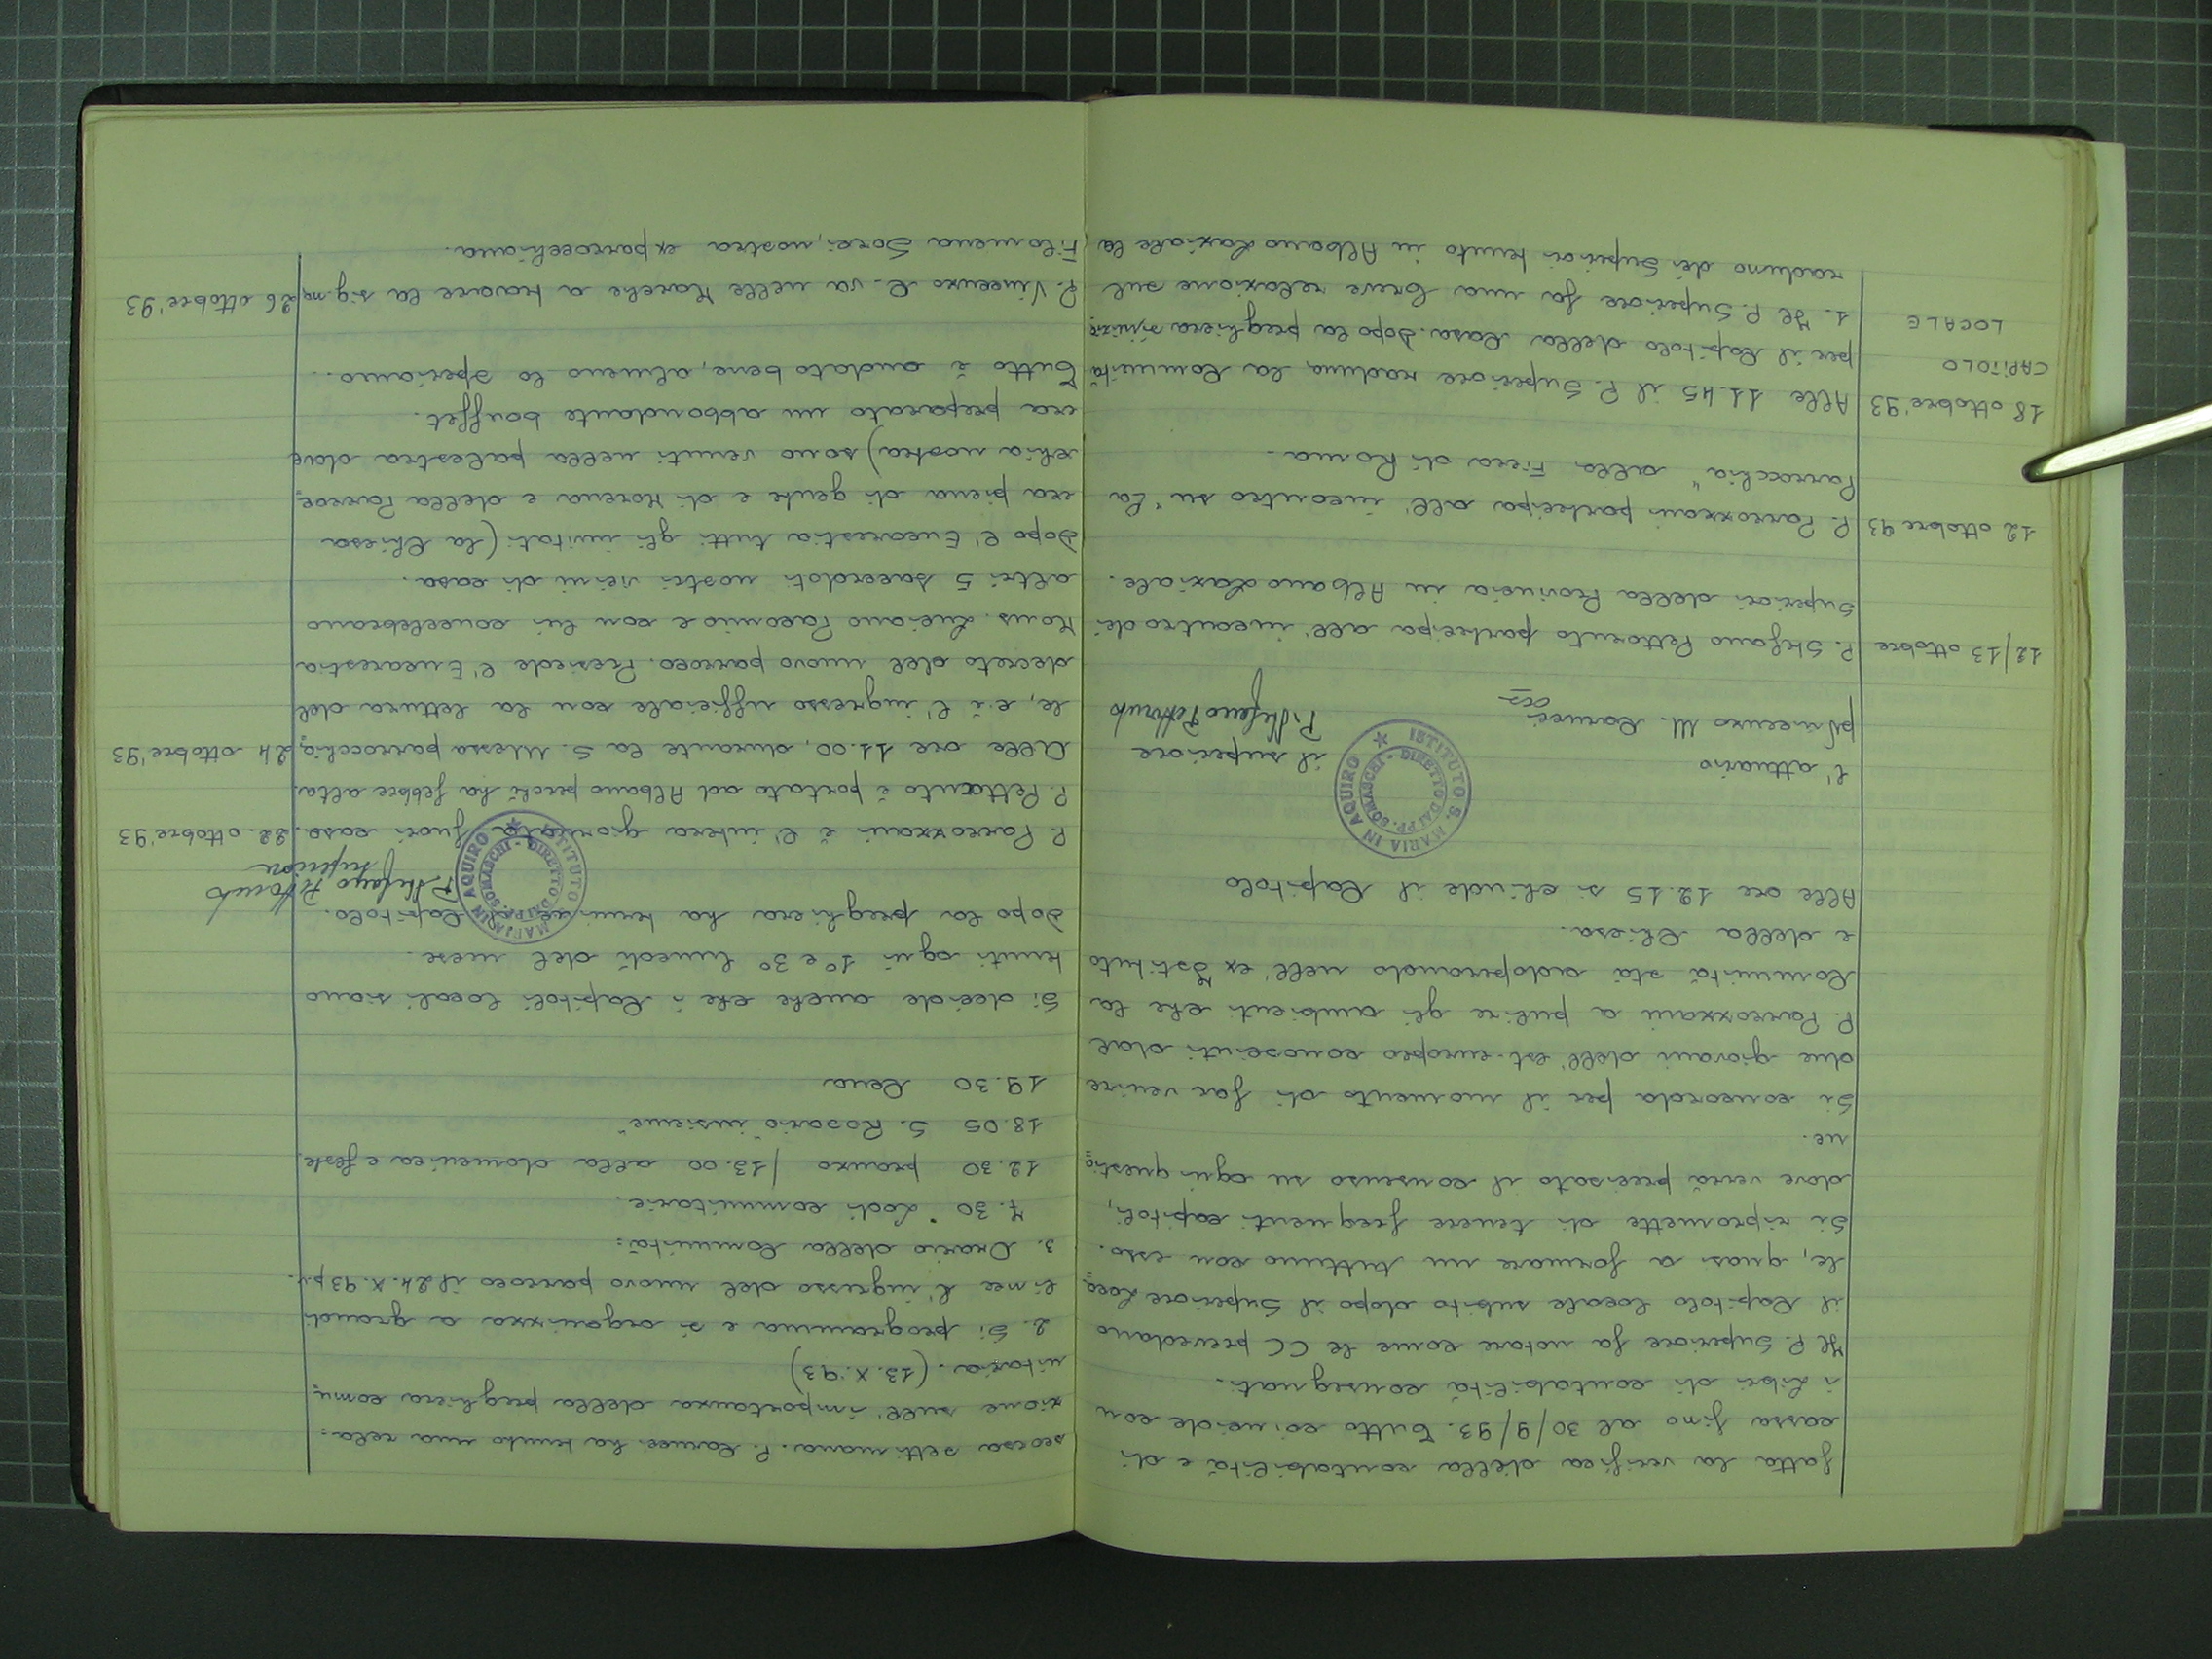 fatta la verifica della contabilità e di
cassa fino al 30/9/93. Tutto coincide con
i Libri di contabilità consegnati.
Il P. Superiore fa notare come le CC prevedano
il Capitolo locale subito dopo il Superiore Loca=
le, quasi a formare un tuttuno con esso.
Si ripromette di tenere frequenti capitoli,
dove verrà precisato il consenso su ogni questio=
ne.
Si concorda per il momento di far venire
due giovani dell'est-europeo conosciuti dal
P. Parrozzani a pulire gli ambienti che la
Comunità stà adoperando nell'ex Istituto
e della Chiesa.
Alle ore 12.15 si chiude il Capitolo
ISTITUTO S. MARIA IN AQUIRO
DIRETTO DAI PP. SOMASCHI
l'attuario
il superiore
P. Stefano Pettoruto
12/13 ottobre
P. Stefano Pettoruto partecipa all'incontro dei
Superiori della Provincia in Albano Laziale.
12 ottobre 93
P. Parrozzani partecipa all'incontro su "La
Parrocchia" alla Fiera di Roma.
18 ottobre '93
CAPITOLO
LOCALE
Alle 11.45 il P. Superiore raduna la Comunità
per il Capitolo della Casa. Dopo la preghiera
1. Il P. Superiore fa una breve relazione sul
raduno dei Superiori tenuto in Albano Laziale la
scorsa settimana. P. Carucci ha tenuto una rela=
zione sull'importanza della preghiera comu=
nitaria. (13.X.93)
2. Si programma e si organizza a grandi
linee l'ingresso del nuovo parroco il 24.X.93 p.v.
3. Orario della Comunità:
7.30 Lodi comunitarie.
12.30 pranzo / 13.00 alla domenica e feste.
18.05 S. Rosario "insieme"
19.30 Cena
Si decide anche che i Capitoli locali siano
tenuti ogni 1° e 3° lunedì del mese.
Dopo la preghiera ha termine il Capitolo.
ISTITUTO S. MARIA IN AQUIRO
DIRETTO DAI PP. SOMASCHI
P. Stefano Pettoruto
superiore
22. ottobre '93
P. Parrozzani è l'intera giornata fuori casa.
P. Pettoruto è portato ad Albano perché ha febbre alta.
24 ottobre '93
Alle ore 11.00, durante la S. Messa parrocchia=
le, c'è l'ingresso ufficiale con la lettura del
decreto del nuovo parroco. Presiede l'Eucarestia
Mons. Luciano Pacomio e con lui concelebrano
altri 5 sacerdoti nostri vicini di casa.
Dopo l'Eucarestia tutti gli invitati (la Chiesa
era piena di gente e di Morena e della Parroc=
chia nostra) sono venuti nella palestra dove
era preparato un abbondante bouffet.
Tutto è andato bene, almeno lo speriamo..
26 ottobre '93
P. Vincenzo C. va nelle Marche a trovare la sig.na
Filomena Sorci, nostra ex parrocchiana.